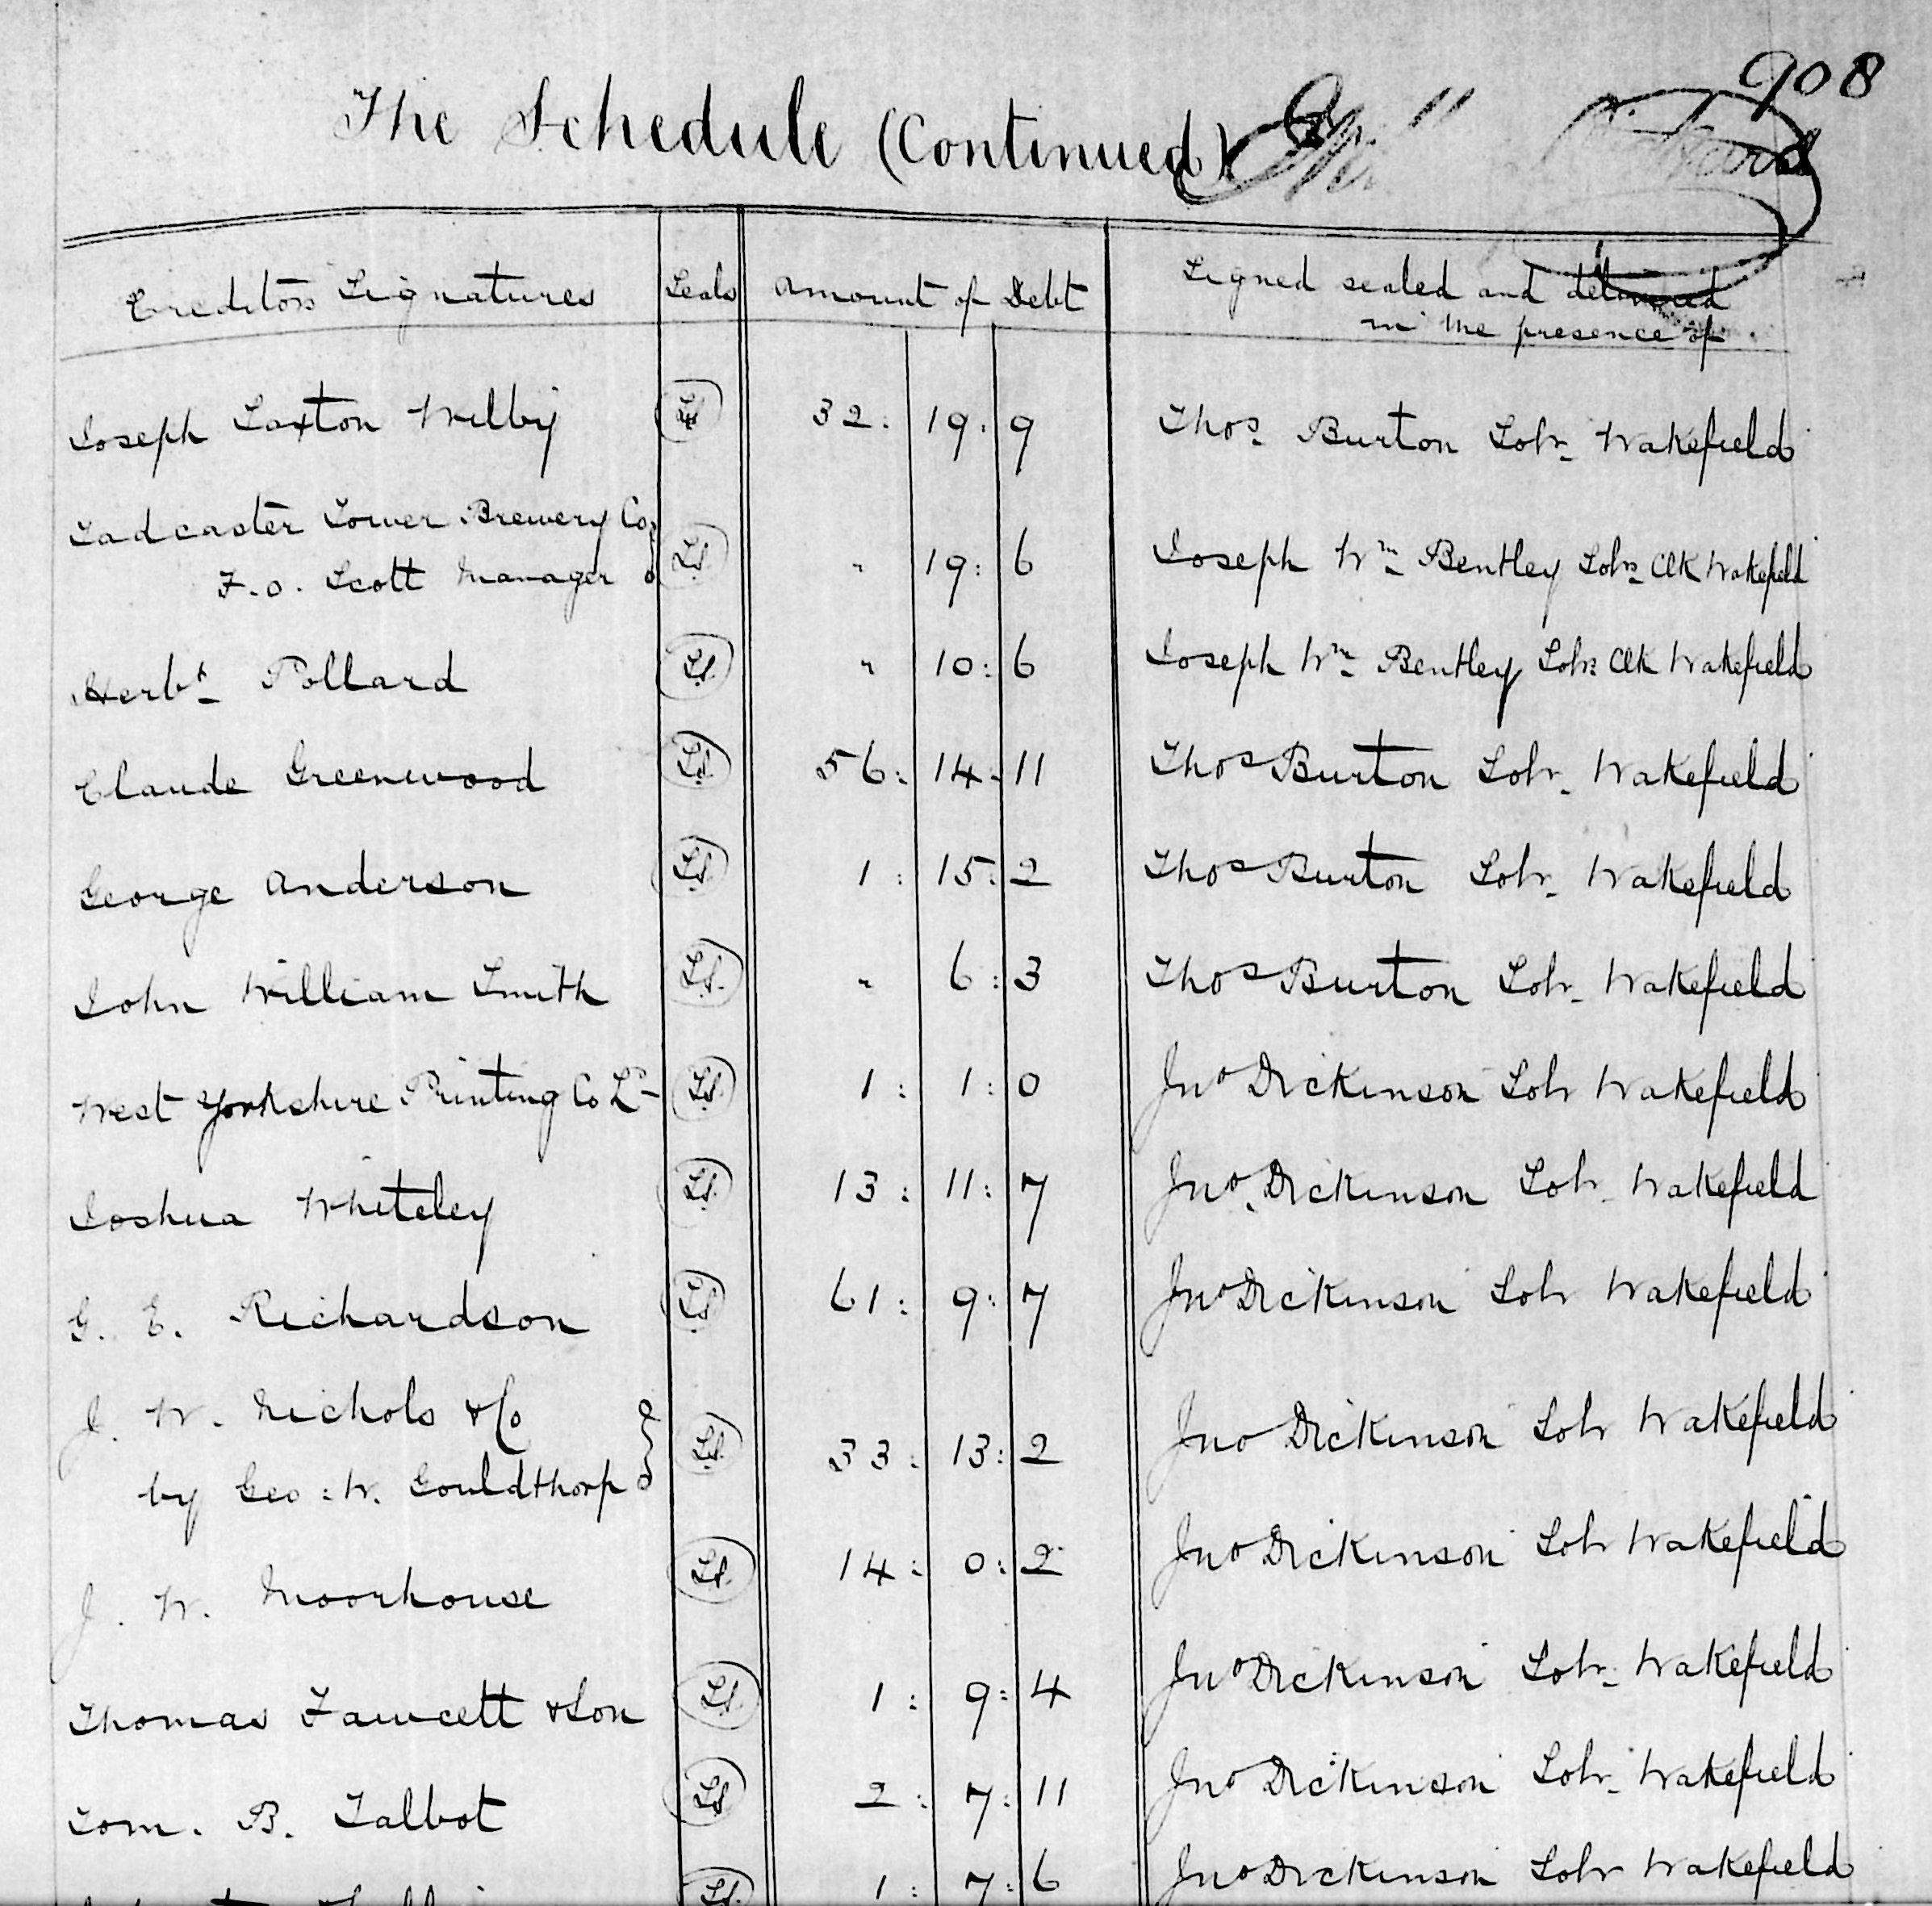 908
The Schedule (Continued)
Creditors Signatures Seals Amount of Debt Signed sealed and delivered
in the presence of
Joseph Laxton Wilby Ls 32 : 19 : 9 Thos Burton Solr Wakefield
Tadcaster Tower Brewery Co
F. O. Scott Manager Ls " 19 : 6 Joseph Wm Bentley Solrs Clk Wakefield
Herbt Pollard Ls " 10 : 6 Joseph Wm Bentley Solrs Clk Wakefield
Claude Greenwood Ls 56 : 14 : 11 Thos Burton Solr Wakefield
George Anderson Ls 1 : 15 : 2 Thos Burton Solr Wakefield
John William Smith Ls " 6 : 3 Thos Burton Solr Wakefield
West Yorkshire Printing Co Ld Ls 1 : 1 : 0 Jno Dickinson Solr Wakefield
Joshua Whiteley Ls 13 : 11 : 7 Jno Dickinson Solr Wakefield
G. E. Richardson Ls 61 : 9 : 7 Jno Dickinson Solr Wakefield
J. W. Nichols & Co
by Geo : W. Gouldthorp Ls 33 : 13 : 2 Jno Dickinson Solr Wakefield
J. W. Moorhouse Ls 14 : 0 : 2 Jno Dickinson Solr Wakefield
Thomas Fawcett & Son Ls 1 : 9 : 4 Jno Dickinson Solr Wakefield
Tom. B. Talbot Ls 2 : 7 : 11 Jno Dickinson Solr Wakefield
Ls 1 : 7 : 6 Jno Dickinson Solr Wakefield